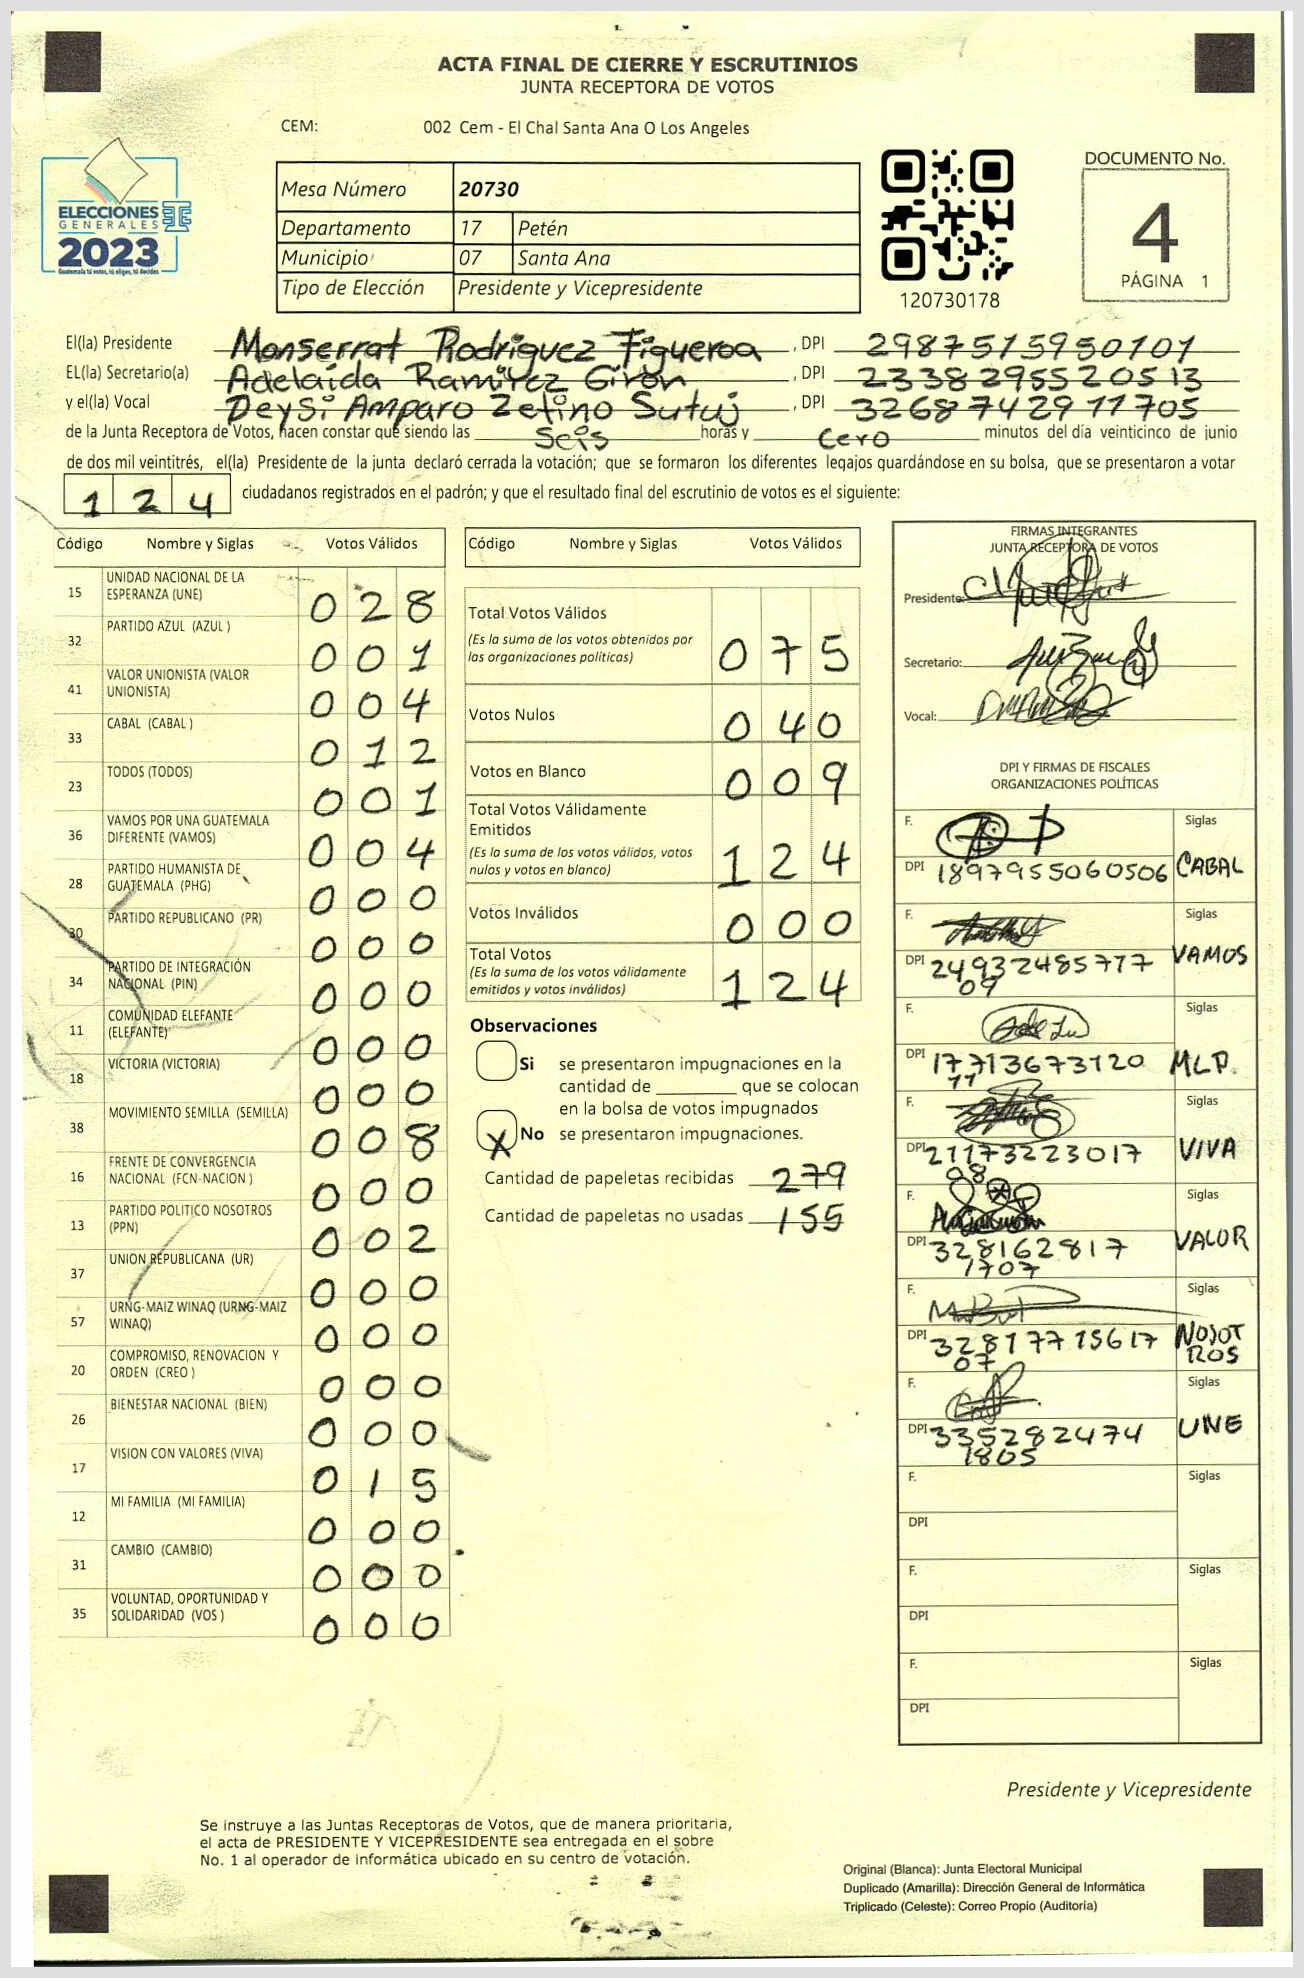 ACTA FINAL DE CIERRE Y ESCRUTINIOS
JUNTA RECEPTORA DE VOTOS
CEM: 002 Cem - El Chal Santa Ana O Los Angeles
ELECCIONES
GENERALES
2023
Guatemala tú votas, tú eliges, tú decides
Mesa Número 20730
Departamento 17 Petén
Municipio 07 Santa Ana
Tipo de Elección Presidente y Vicepresidente
120730178
DOCUMENTO No.
4
PÁGINA 1
El(la) Presidente Monserrat Rodriguez Figueroa , DPI 2987515950101
EL(la) Secretario(a) Adelaida Ramirez Giron , DPI 2338295520513
y el(la) Vocal Deysi Amparo Zetino Sutuj , DPI 3268742911705
de la Junta Receptora de Votos, hacen constar que siendo las Seis horas y Cero minutos del día veinticinco de junio
de dos mil veintitrés, el(la) Presidente de la junta declaró cerrada la votación; que se formaron los diferentes legajos guardándose en su bolsa, que se presentaron a votar
1 2 4 ciudadanos registrados en el padrón; y que el resultado final del escrutinio de votos es el siguiente:
Código Nombre y Siglas Votos Válidos
15 UNIDAD NACIONAL DE LA
ESPERANZA (UNE) 0 2 8
32 PARTIDO AZUL (AZUL ) 0 0 1
41 VALOR UNIONISTA (VALOR
UNIONISTA) 0 0 4
33 CABAL (CABAL ) 0 1 2
23 TODOS (TODOS) 0 0 1
36 VAMOS POR UNA GUATEMALA
DIFERENTE (VAMOS) 0 0 4
28 PARTIDO HUMANISTA DE
GUATEMALA (PHG) 0 0 0
30 PARTIDO REPUBLICANO (PR) 0 0 0
34 PARTIDO DE INTEGRACIÓN
NACIONAL (PIN) 0 0 0
11 COMUNIDAD ELEFANTE
(ELEFANTE) 0 0 0
18 VICTORIA (VICTORIA) 0 0 0
38 MOVIMIENTO SEMILLA (SEMILLA) 0 0 8
16 FRENTE DE CONVERGENCIA
NACIONAL (FCN-NACION ) 0 0 0
13 PARTIDO POLITICO NOSOTROS
(PPN) 0 0 2
37 UNION REPUBLICANA (UR) 0 0 0
57 URNG-MAIZ WINAQ (URNG-MAIZ
WINAQ) 0 0 0
20 COMPROMISO, RENOVACION Y
ORDEN (CREO ) 0 0 0
26 BIENESTAR NACIONAL (BIEN) 0 0 0
17 VISION CON VALORES (VIVA) 0 1 5
12 MI FAMILIA (MI FAMILIA) 0 0 0
31 CAMBIO (CAMBIO) 0 0 0
35 VOLUNTAD, OPORTUNIDAD Y
SOLIDARIDAD (VOS ) 0 0 0
Código Nombre y Siglas Votos Válidos
Total Votos Válidos
(Es la suma de los votos obtenidos por
las organizaciones políticas) 0 7 5
Votos Nulos 0 4 0
Votos en Blanco 0 0 9
Total Votos Válidamente
Emitidos
(Es la suma de los votos válidos, votos
nulos y votos en blanco) 1 2 4
Votos Inválidos 0 0 0
Total Votos
(Es la suma de los votos válidamente
emitidos y votos inválidos) 1 2 4
Observaciones
Si se presentaron impugnaciones en la
cantidad de ________ que se colocan
en la bolsa de votos impugnados
X No se presentaron impugnaciones.
Cantidad de papeletas recibidas 279
Cantidad de papeletas no usadas 155
FIRMAS INTEGRANTES
JUNTA RECEPTORA DE VOTOS
Presidente:
Secretario:
Vocal:
DPI Y FIRMAS DE FISCALES
ORGANIZACIONES POLÍTICAS
F. Siglas
DPI 1897955060506 CABAL
F. Siglas
DPI 24932485777 VAMOS
09
F. Siglas
DPI 17713673120 MLP.
11
F. Siglas
DPI 21173223017 VIVA
08
F. Siglas
DPI 328162817 VALOR
1707
F. Siglas
DPI 32817715617 NOSOT
07 ROS
F. Siglas
DPI 335282474 UNE
1805
F. Siglas
DPI
F. Siglas
DPI
F. Siglas
DPI
Presidente y Vicepresidente
Se instruye a las Juntas Receptoras de Votos, que de manera prioritaria,
el acta de PRESIDENTE Y VICEPRESIDENTE sea entregada en el sobre
No. 1 al operador de informática ubicado en su centro de votación.
Original (Blanca): Junta Electoral Municipal
Duplicado (Amarilla): Dirección General de Informática
Triplicado (Celeste): Correo Propio (Auditoría)